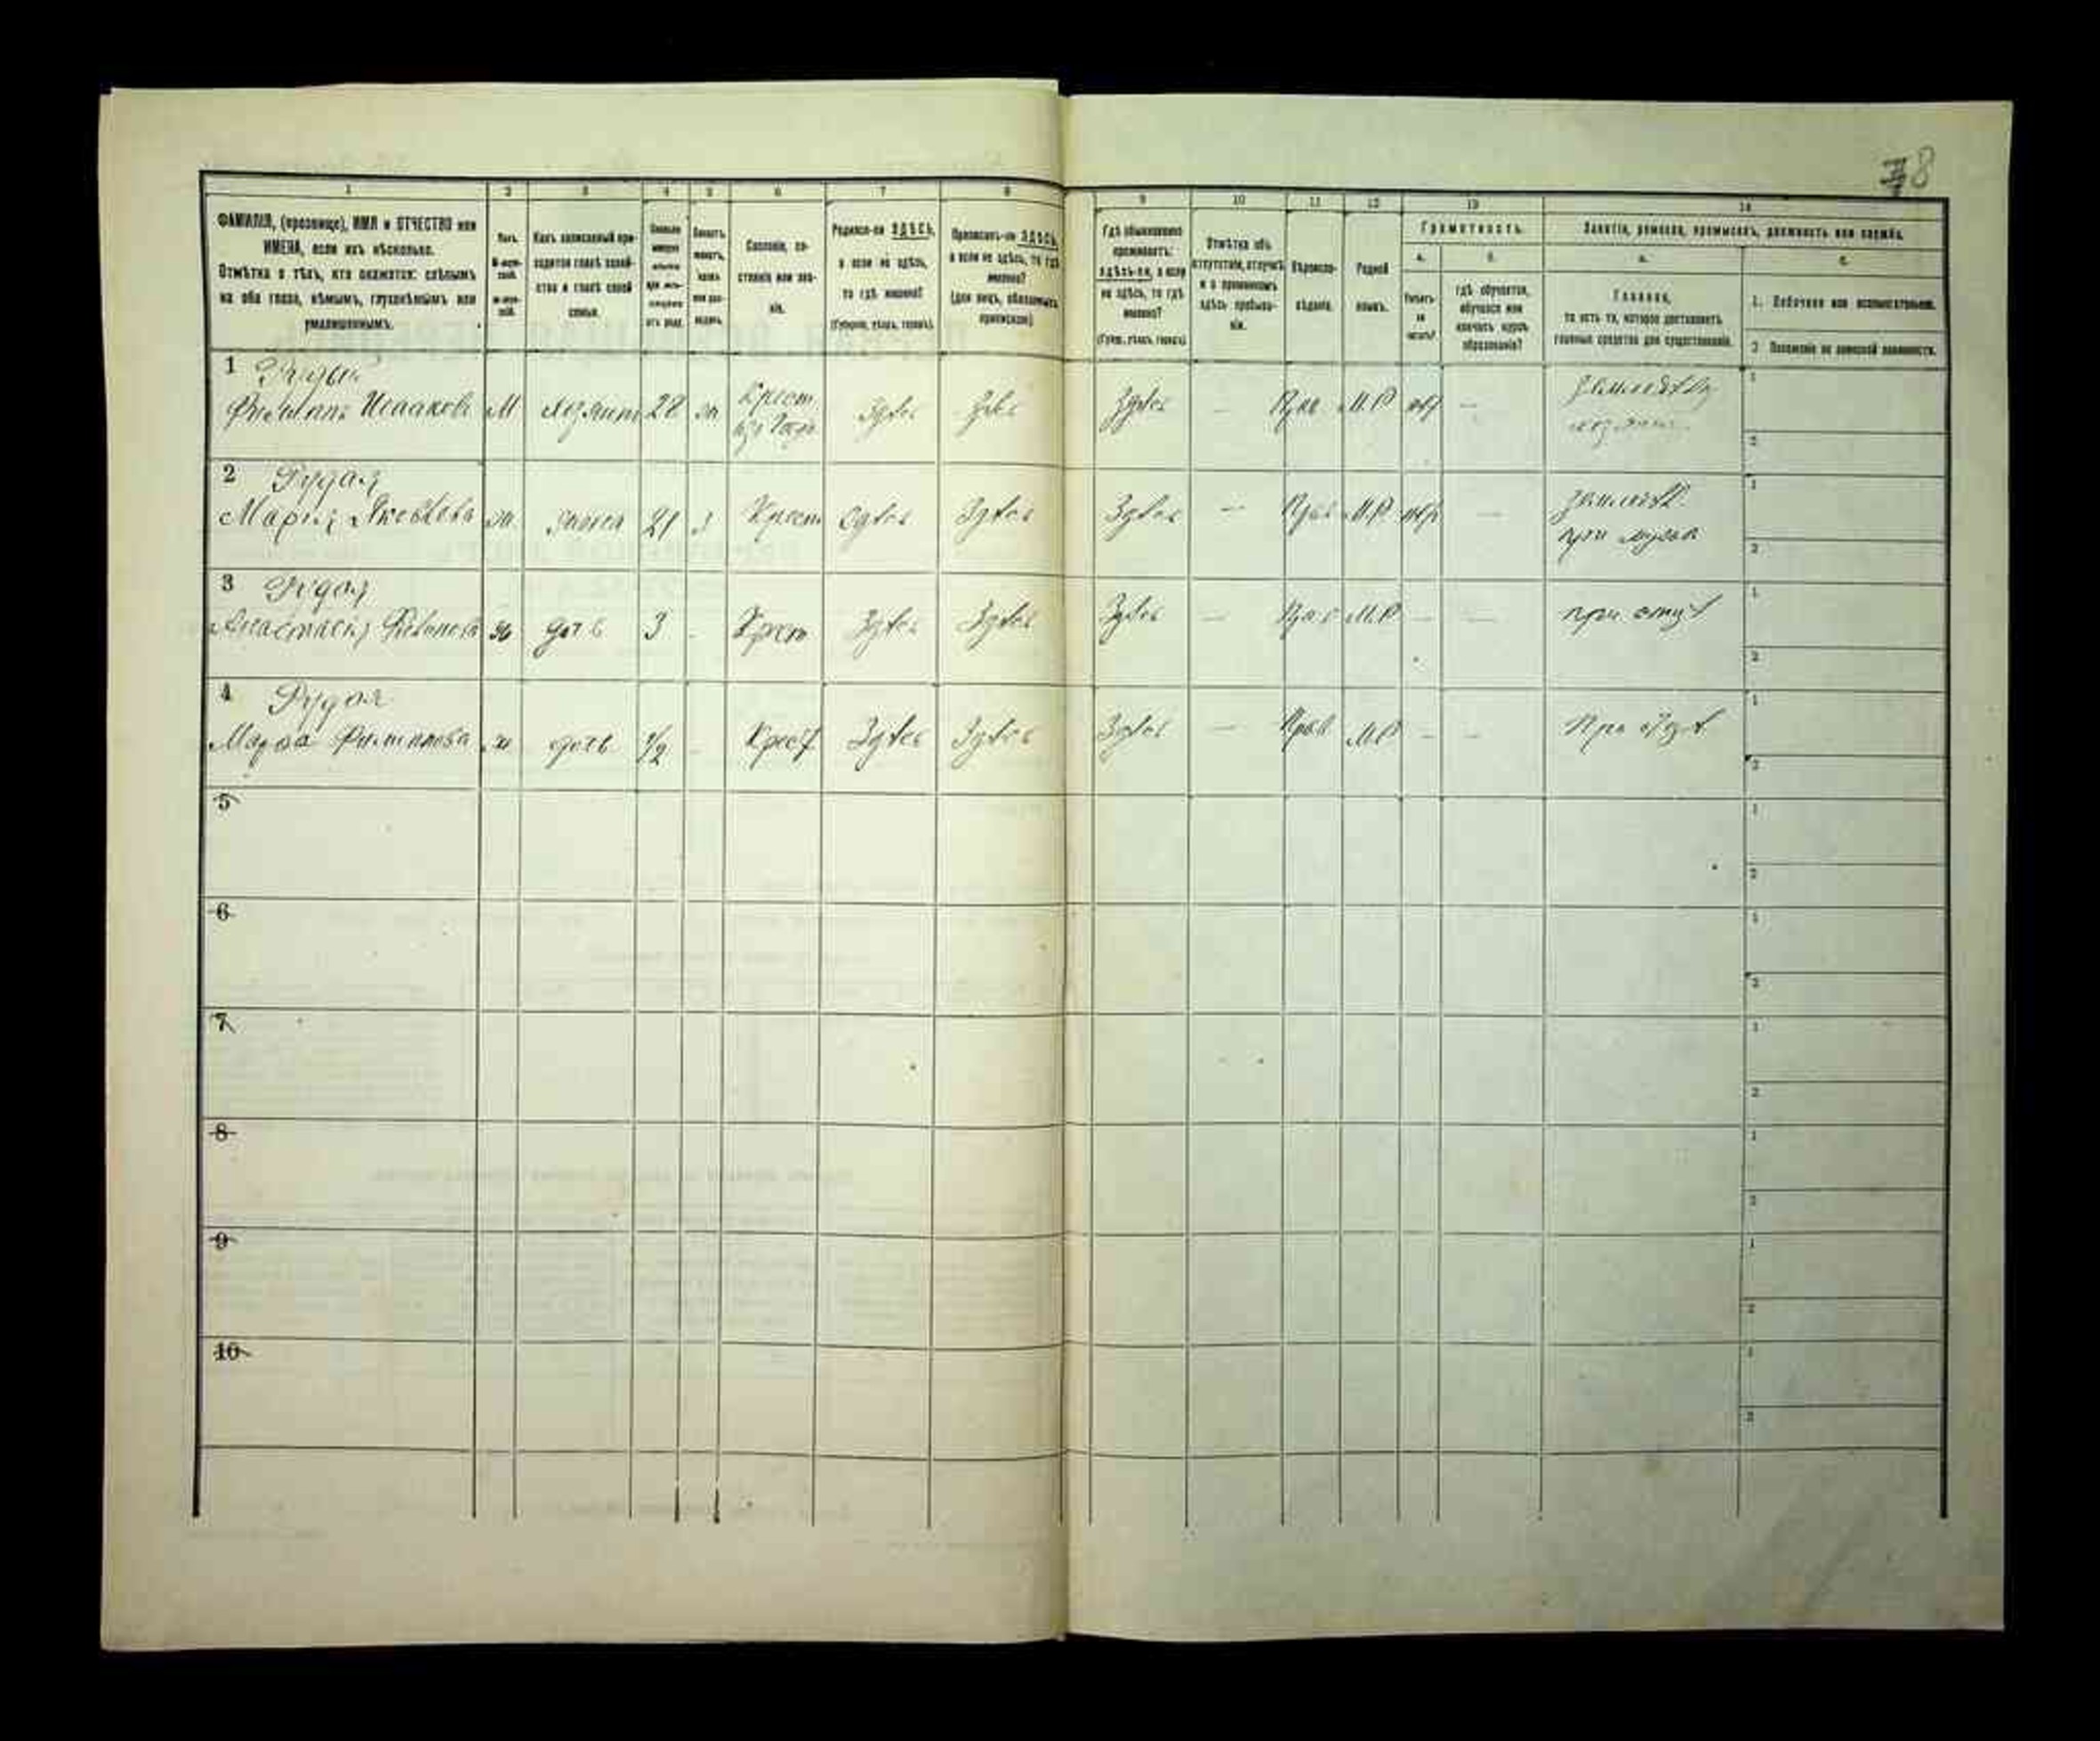 78
1 2 3 4 5 6 7 8 9 10 11 12 13 14
ФАМИЛІЯ, (прозвище), ИМЯ и ОТЧЕСТВО или
ИМЕНА, если ихъ нѣсколько.
Отмѣтка о тѣхъ, кто окажется: слѣпымъ
на оба глаза, нѣмымъ, глухонѣмымъ или
умалишеннымъ.
Полъ.
М-муж-
ской.
Ж-жен-
ской.
Какъ записанный при-
ходится главѣ хозяй-
ства и главѣ своей
семьи.
Сколько
минуло
лѣтъ
отъ роду.
Холостъ,
женатъ,
вдовъ
или раз-
веденъ.
Сословіе, со-
стояніе или зва-
ніе.
Родился-ли ЗДѢСЬ,
а если не здѣсь,
то гдѣ именно?
(Губернія, уѣздъ, городъ).
Приписанъ-ли ЗДѢСЬ,
а если не здѣсь, то гдѣ
именно?
(для лицъ, обязанныхъ
припискою)
Гдѣ обыкновенно
проживаетъ:
здѣсь-ли, а если
не здѣсь, то гдѣ
именно?
(Губер., уѣздъ, городъ)
Отмѣтка объ
отсутствіи, отлучкѣ
и о временномъ
здѣсь пребыва-
ніи.
Вѣроиспо-
вѣданіе.
Родной
языкъ.
Грамотность.
а.
Умѣетъ-
ли
читать?
б.
гдѣ обучается,
обучался или
кончилъ курсъ
образованія?
Занятія, ремесло, промыселъ, должность или служба.
а.
Главное,
то есть то, которое доставляетъ
главныя средства для существованія.
1. Побочное или вспомогательное.
2 Положеніе по воинской повинности.
1 Рудый
Филипъ Исааковъ М хозяинъ 28 ж Крест. Здѣсь Здѣсь Здѣсь — Прав М.Р —
2 Рудая
Марія Яковлева ж жена 21 Крест Здѣсь Здѣсь Здѣсь — Прав М.Р —
при мужѣ
3 Рудая
Анастасія ж дочь 3 - Крест Здѣсь Здѣсь Здѣсь — Прав М.Р — — при отцѣ
4 Рудая
Марѳа Филипова ж дочь 1/2 - Крест Здѣсь Здѣсь Здѣсь — Прав М.Р - - При отцѣ
5
6
7
8
9
10